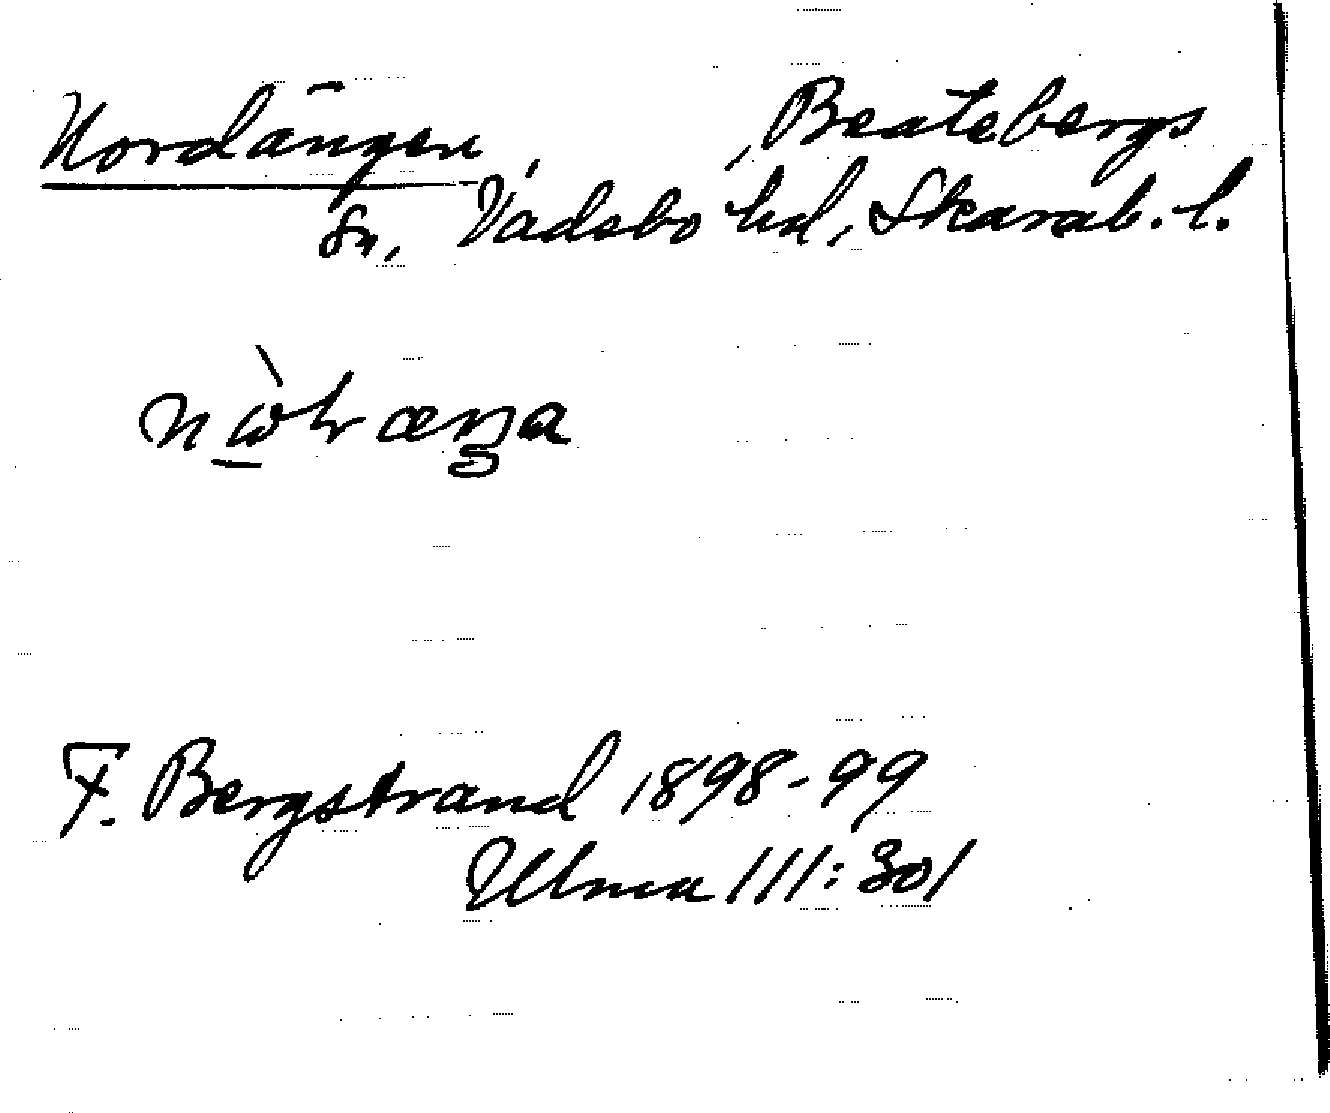 Nordängen, Beatebergs
Sn, Vadsbo hd, Skarab. l.
F. Bergstrand 1898-99
Ulma 111:301